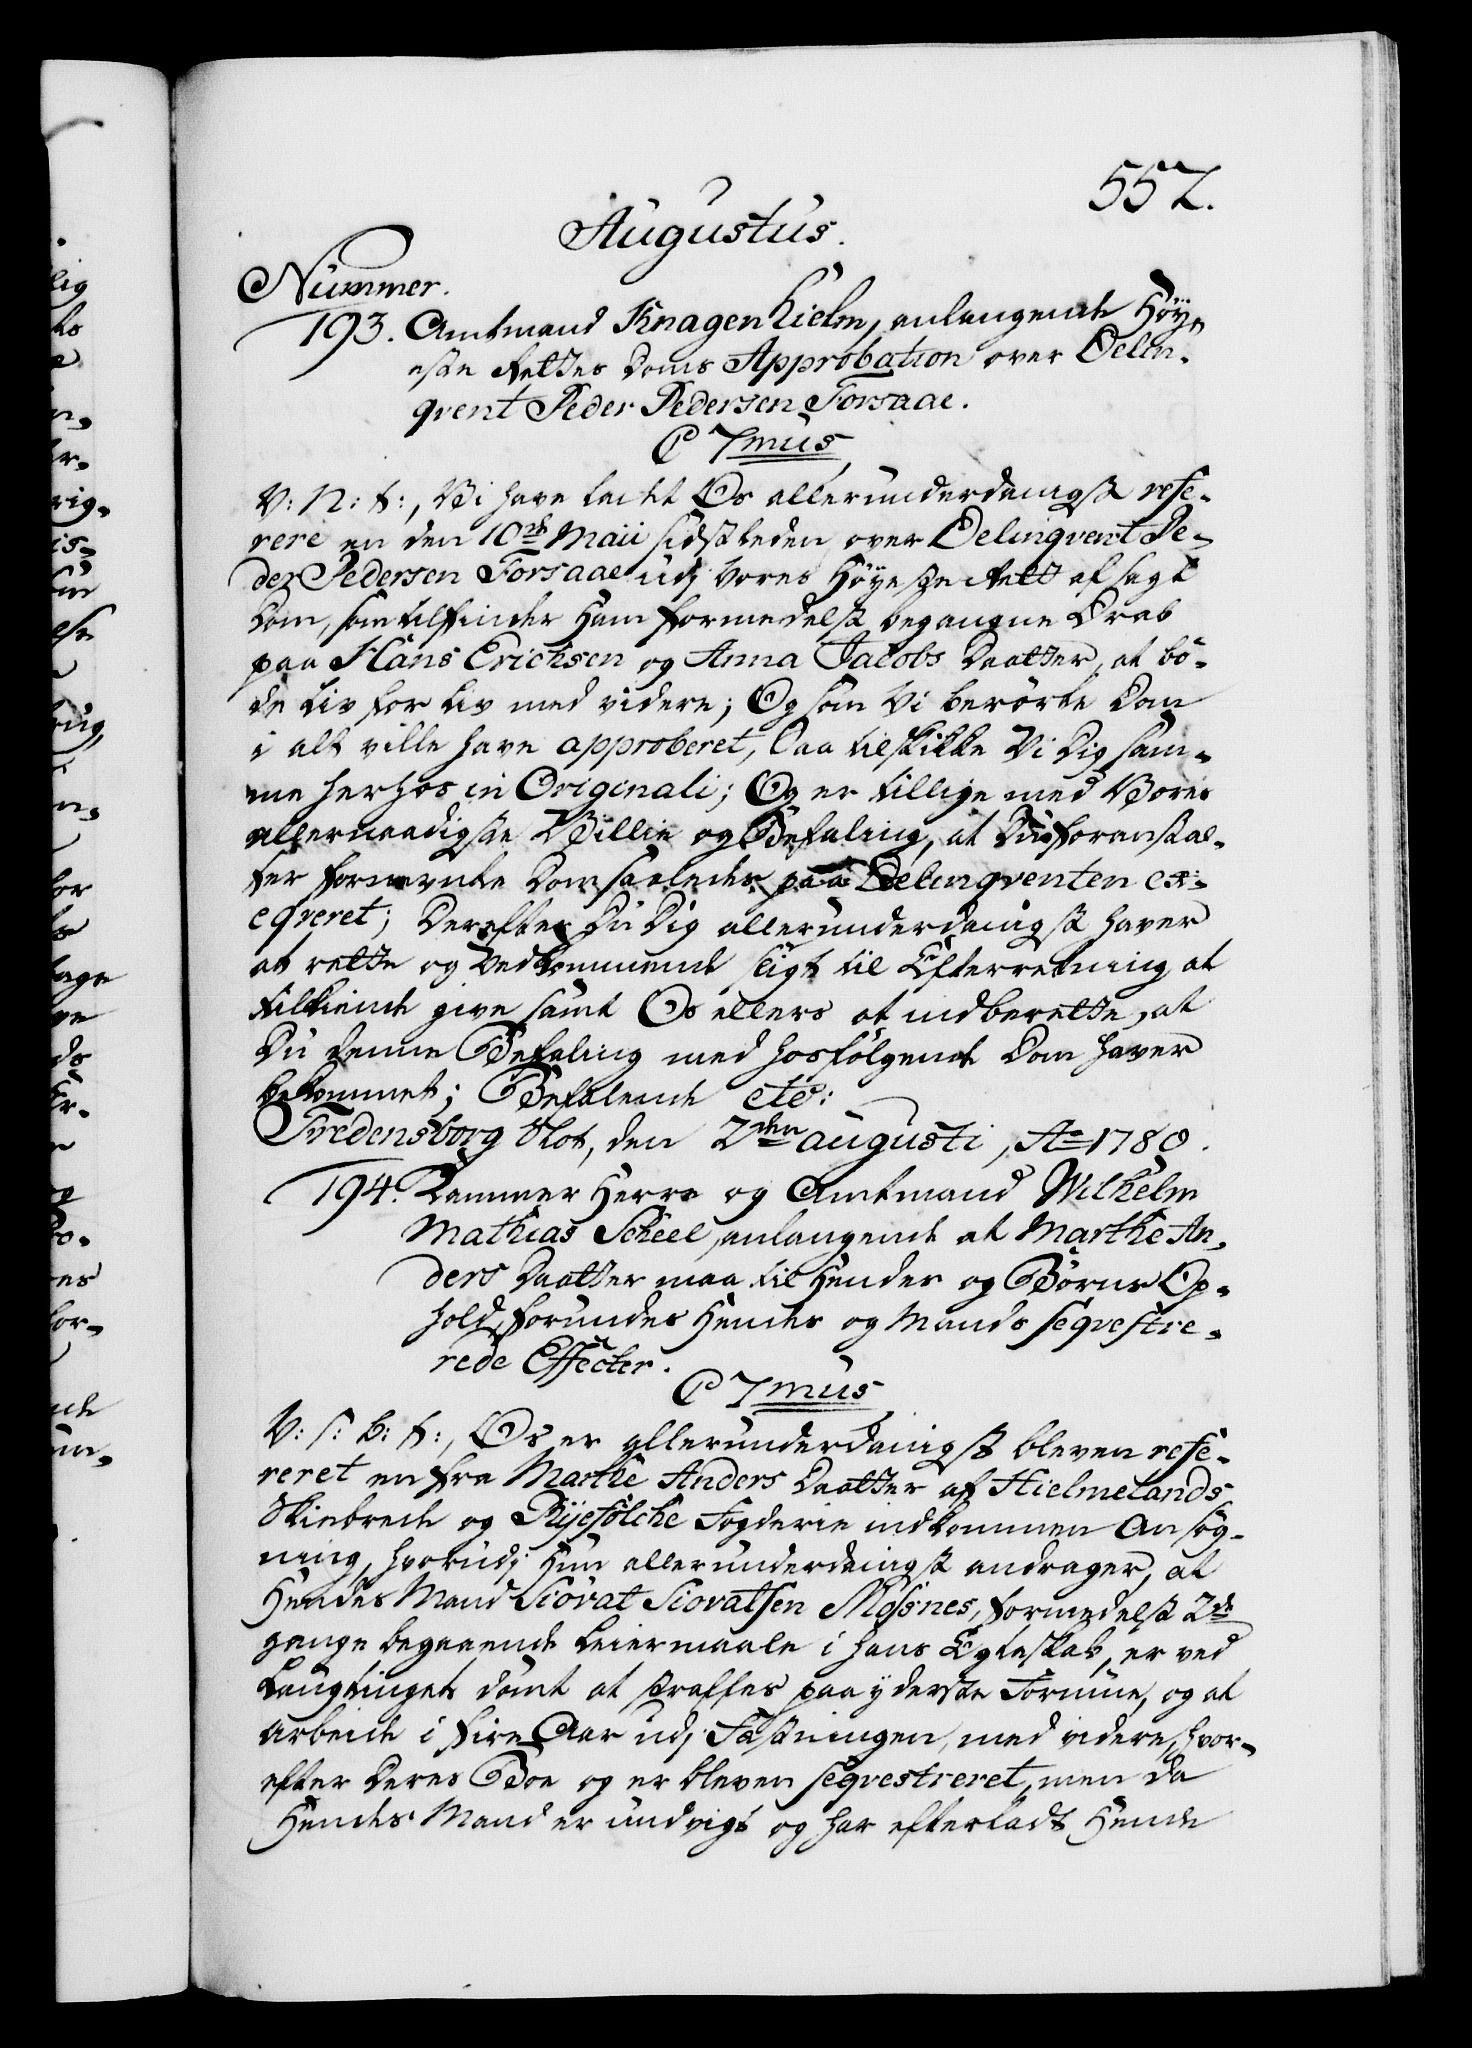 557.
Augustus.
Nummer.
193. Amtmand Knagenhielm, anlangende Høÿ-
este Rettes Doms Approbation over Delin-
qvent Peder Pedersen Forsaae.
C 7mus
V: N: t:, Vi have ladet Os allerunderdanigst refe-
rere en den 10de Maii sidstleden over Delinqvent Pe-
der Pedersen Forsaae udj Vores Høÿeste Rett afsagt
Dom, som tilfinder Ham formedelst begangne Drab
paa Hans Erichsen og Anna Jacobs Daatter, at bö-
de Liv for Liv med videre; Og som Vi berörte Dom
i alt ville have approberet, Saa tilskikke Vi Dig sam-
me herhos in Originali; Og er tillige med Vores
allernaadigste Villie og Befaling, at Du foranstal-
ter fornevnte Dom saaledes paa Delinqventen ex-
eqveret; Derefter Du Dig allerunderdanigst haver
at rette og Vedkommende sligt til Efterretning at
tilkiende give samt Os ellers at indberette, at
Du denne Befaling med hosfölgende Dom haver
bekommet; Befalende etc:
Fredensborg Slot, den 2den augusti, Ao 1780.
194. Kammer Herre og Amtmand Wilhelm
Mathias Scheel, anlangende at Marthe An-
ders Daatter maa til Hendes og Börns Op-
hold, forundes Hendes og Mands seqvestre-
rede Effecter.
C 7mus
V: s: b: t:, Os er allerunderdanigst bleven refe-
reret en fra Marthe Anders Daatter af Hielmelands
Skibrede og Rÿefölche Fogderie indkommen Ansög-
ning, hvorudj Hun allerunderdanigst andrager, at
Hendes Mand Siovat Siovatsen Mösnes, formedelst 2de
gange begaaende Leiermaale i hans Egteskab, er ved
Laugtinget dömt at straffes paa ÿderste Formue, og at
arbeide i fire Aar udj Fæstningen, med videre, hvor-
efter Deres Boe og er bleven seqvestreret, men da
Hendes Mand er undvigt og har efterladt Hende